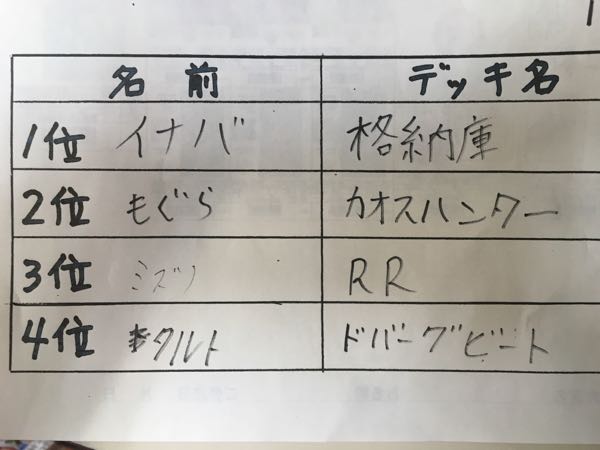 名前 デッキ名
1位 イナバ 格納庫
2位 もぐら カオスハンター
3位 ミズノ RR
4位 タルト ドバーグビート